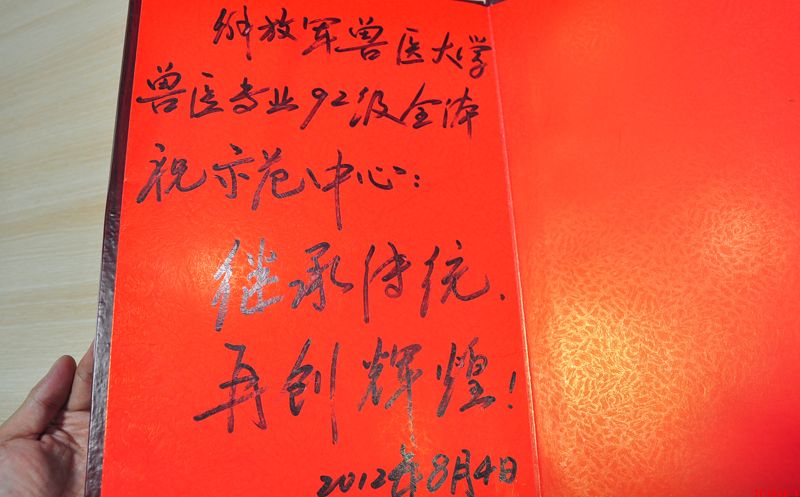 解放军兽医大学
兽医专业92级全体
祝示范中心:
继承传统、
再创辉煌!
2012年8月4日